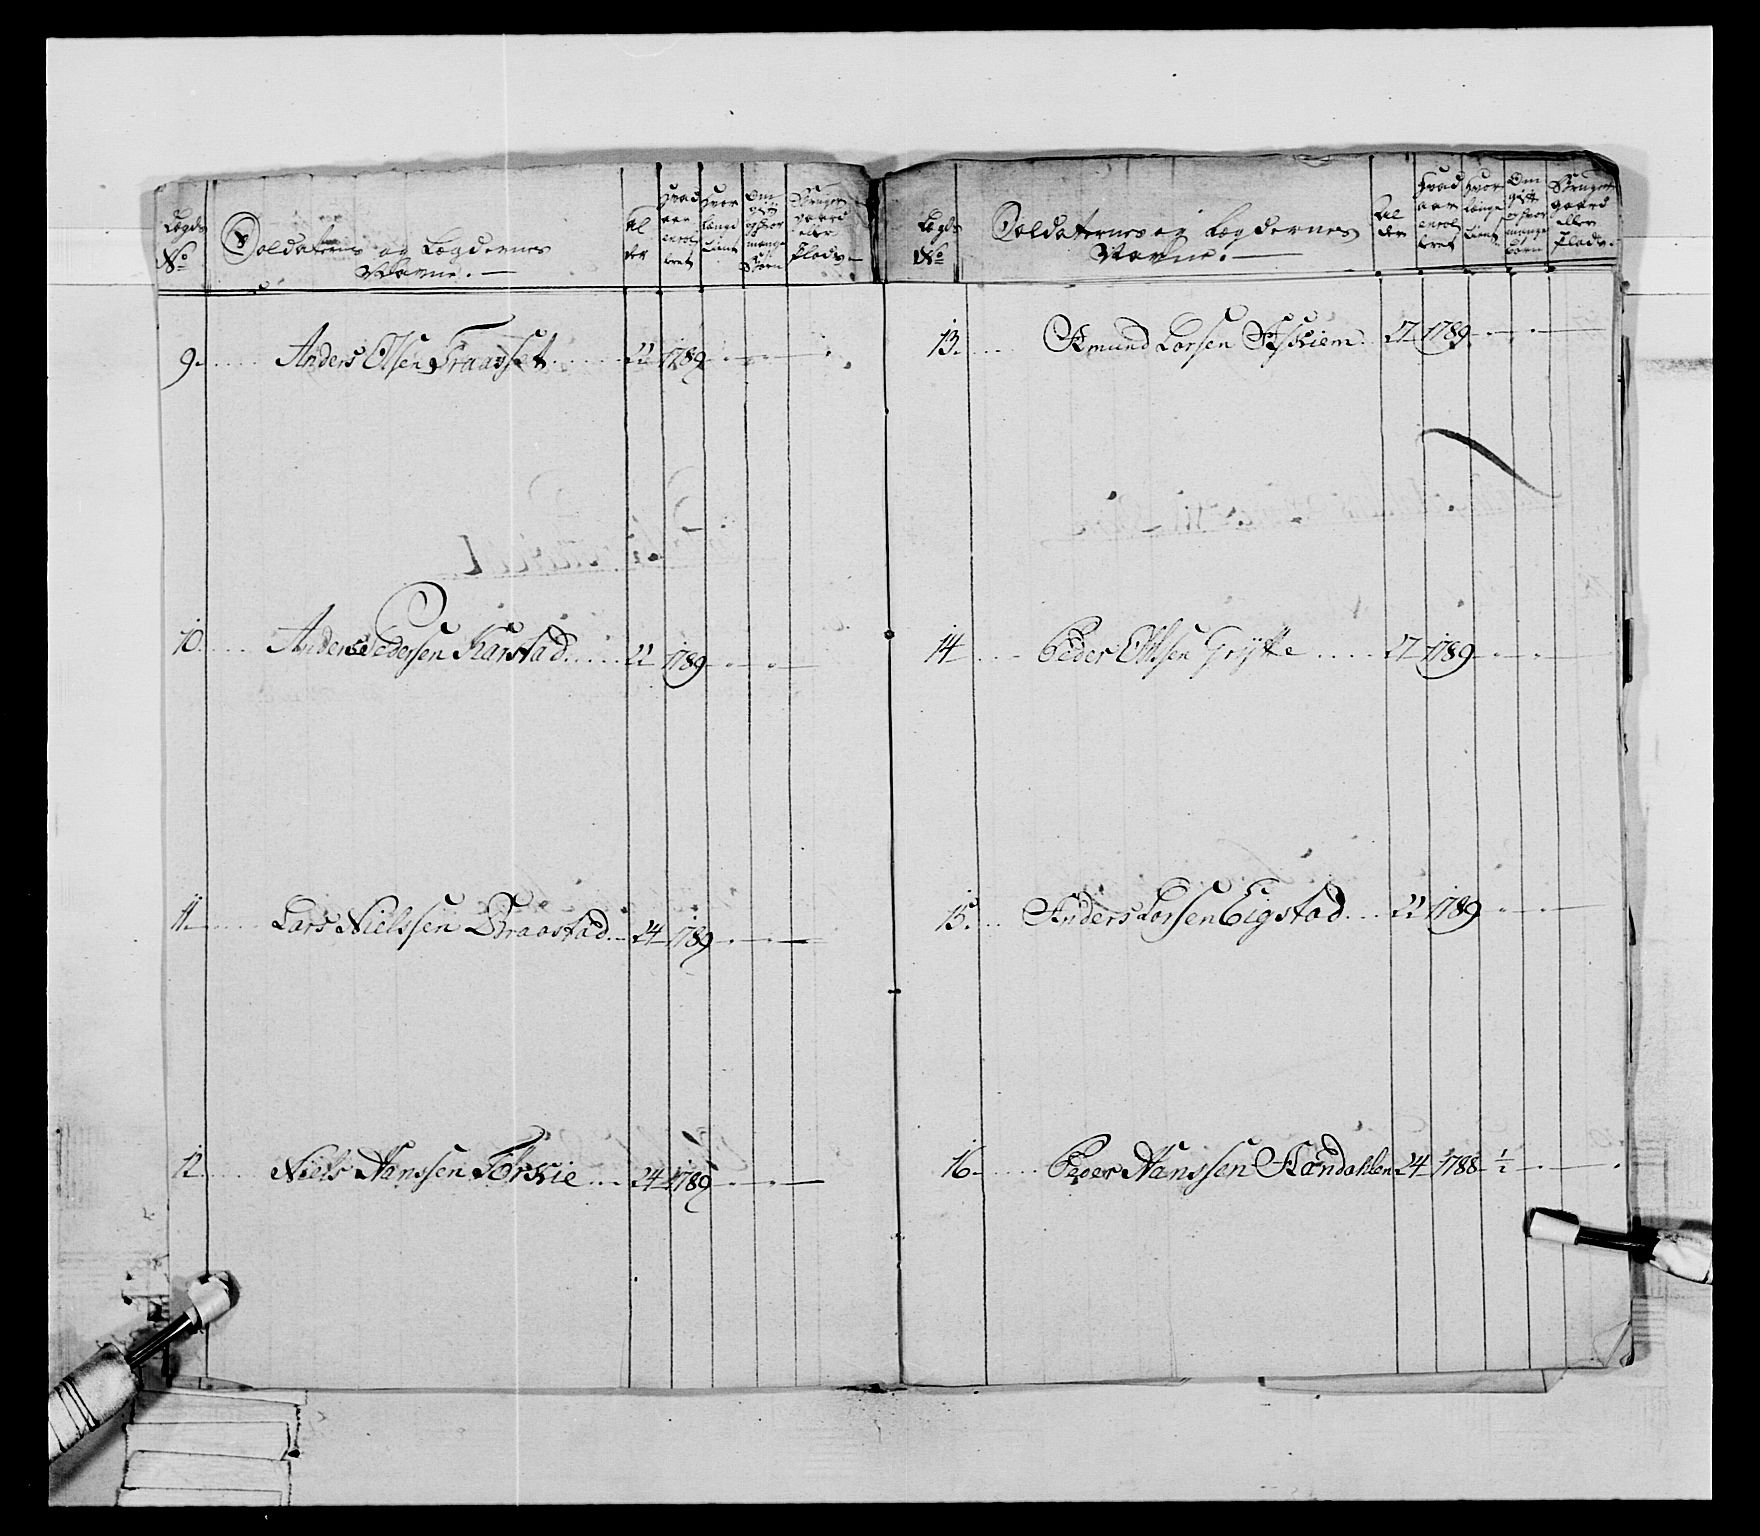 Lægds No
Soldaternes og Lægdernes Navne.
Al der
Hvad aar enrol leret
Hvor længe tient
Om gift og hvor mange Børn
Bruger gaard eller Plads
9. Anders Olsen Traasset 22 1789
10. Anders Pedersen Karstad 22 1789
11. Lars Nielssen Braastad 24 1789
12. Niels Hanssen 24 1789
Lægds No
Soldaternes og Lægdernes Navne.
Al der
Hvad aar enrol leret
Hvor længe tient
Om gift og hvor mange Børn
Bruger gaard eller Plads.
13. Amund Larsen 27 1789
14 Peder Olsen Grytte 27 1789
15. Anders Larsen Eigstad 22 1789
16. Peder Hanssen 24 1788 1/2